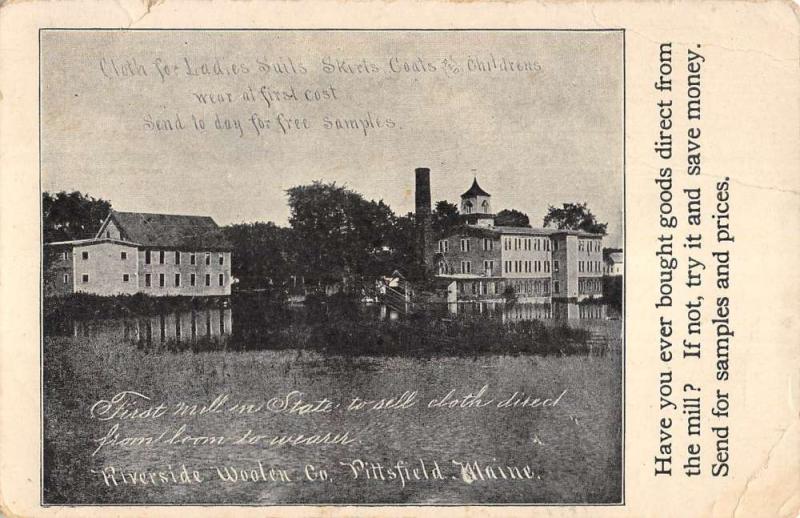 Cloth for Ladies Suits Skirts, Coats and Childrens
wear at first cost
Send to day for free samples.
First mill in State to sell cloth direct
from loom to wearer.
Riverside Woolen Co. Pittsfield. Maine.
Have you ever bought goods direct from
the mill? If not, try it and save money.
Send for samples and prices.